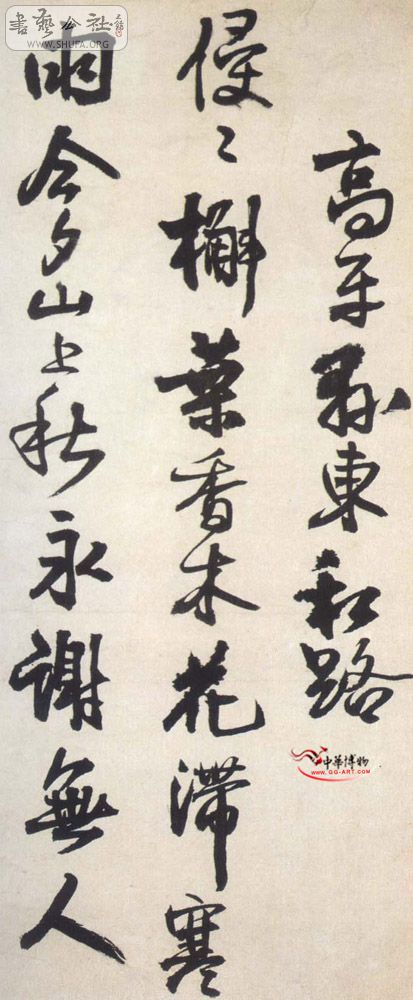 高平縣東私路
侵々槲葉香木花滯寒
雨今夕山上秋永謝無人
書藝公社
WWW.SHUFA.ORG
中華博物
WWW.GG-ART.COM